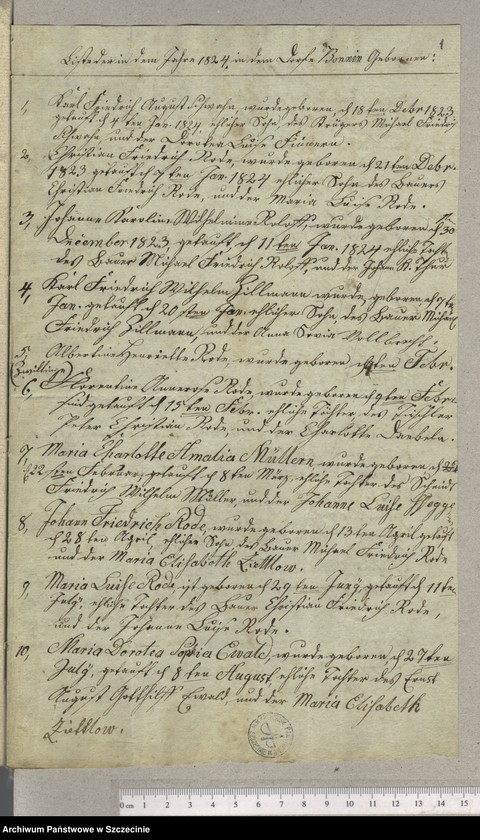 Liste der in dem Jahre 1824, in dem Dorfe Bonnin Gebornen:
1
1, Karl Friedrich August Schwahn, wurde geboren, d 18ten Debr 1823
getauft d 4ten Jan. 1824, ehlicher Sohn des Krügers Michael Friedrich
Schwahn, und der Dorotea Luise
2, Christian Friedrich Rode, wurde geboren d 21ten Debr.
1823 getauft d Jan. 1824 ehlicher Sohn des Bauers
Christian Friedrich Rode, und der Maria Luise Rode.
3, Johanne Karoline Wilhelmine Roloff, wurde geboren d 30
December 1823, getauft, d 11ten Jan. 1824 ehliche Tochter
des Bauer Michael Friedrich Roloff, und der Johan.
4, Karl Friedrich Wilhelm Zillmann wurde geboren d
Jan. getauft d 20sten Jan. ehlicher Sohn des Bauer Michael
Friedrich Zillmann, und der Anna Sovia Vollbrecht.
5, Albertine Henriette Rode, wurde geboren d Febr.
(Zwillinge)
6, Florentine Rode, wurde geboren d 9ten Febr.
sind getauft d 15ten Febr. ehliche Töchter des Tischler
Peter Christian Rode, und der Charlotte
7, Maria Charlotte Amalia Müllern wurde geboren d
22ten Februar, getauft d 8ten März, ehliche Tochter des
Friedrich Wilhelm Müller und der Johanne Luise
8, Johann Friedrich Rode, wurde geboren d 13ten April getauft
d 28 April, ehlicher Sohn des Bauer Michael Friedrich Rode
und der Maria Elisabeth Lüttkow.
9, Maria Luise Rode ist geboren d 29ten Juny, getauft d 11ten
July, ehliche Tochter des Bauer Christian Friedrich Rode,
und der Johanne Luise Rode.
10, Maria Dorotea Sophia Ewald, wurde geboren, d 27ten
July, getauft d 8ten August ehliche Tochter des Ernst
August Gotthilff Ewald, und der Maria Elisabeth
Züttlow.
0 cm 1 2 3 4 5 6 7 8 9 10 11 12 13 14 15
Archiwum Państwowe w Szczecinie